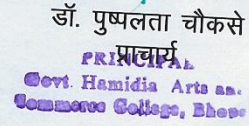 डॉ. पुष्पलता चौकसे
प्राचार्य
PRINCIPAL
Govt. Hamidia Arts an.
Commerce College, Bhop